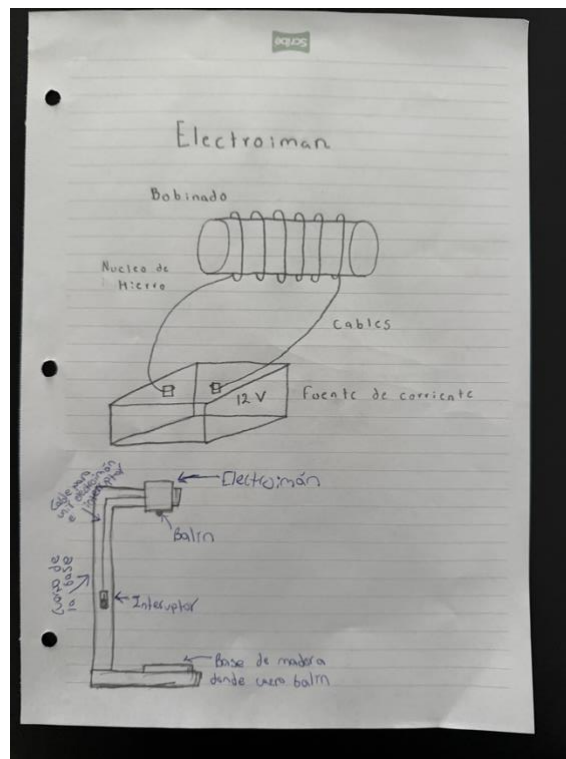 Scribe
Electroiman
Bobinado
Nucleo de
Hierro
Cables
12 V
Fuente de corriente
Cable para
unir electroimán
e interruptor
Electroimán
Balin
Cuerpo de
la base
Interuptor
Base de madera
donde caera balin